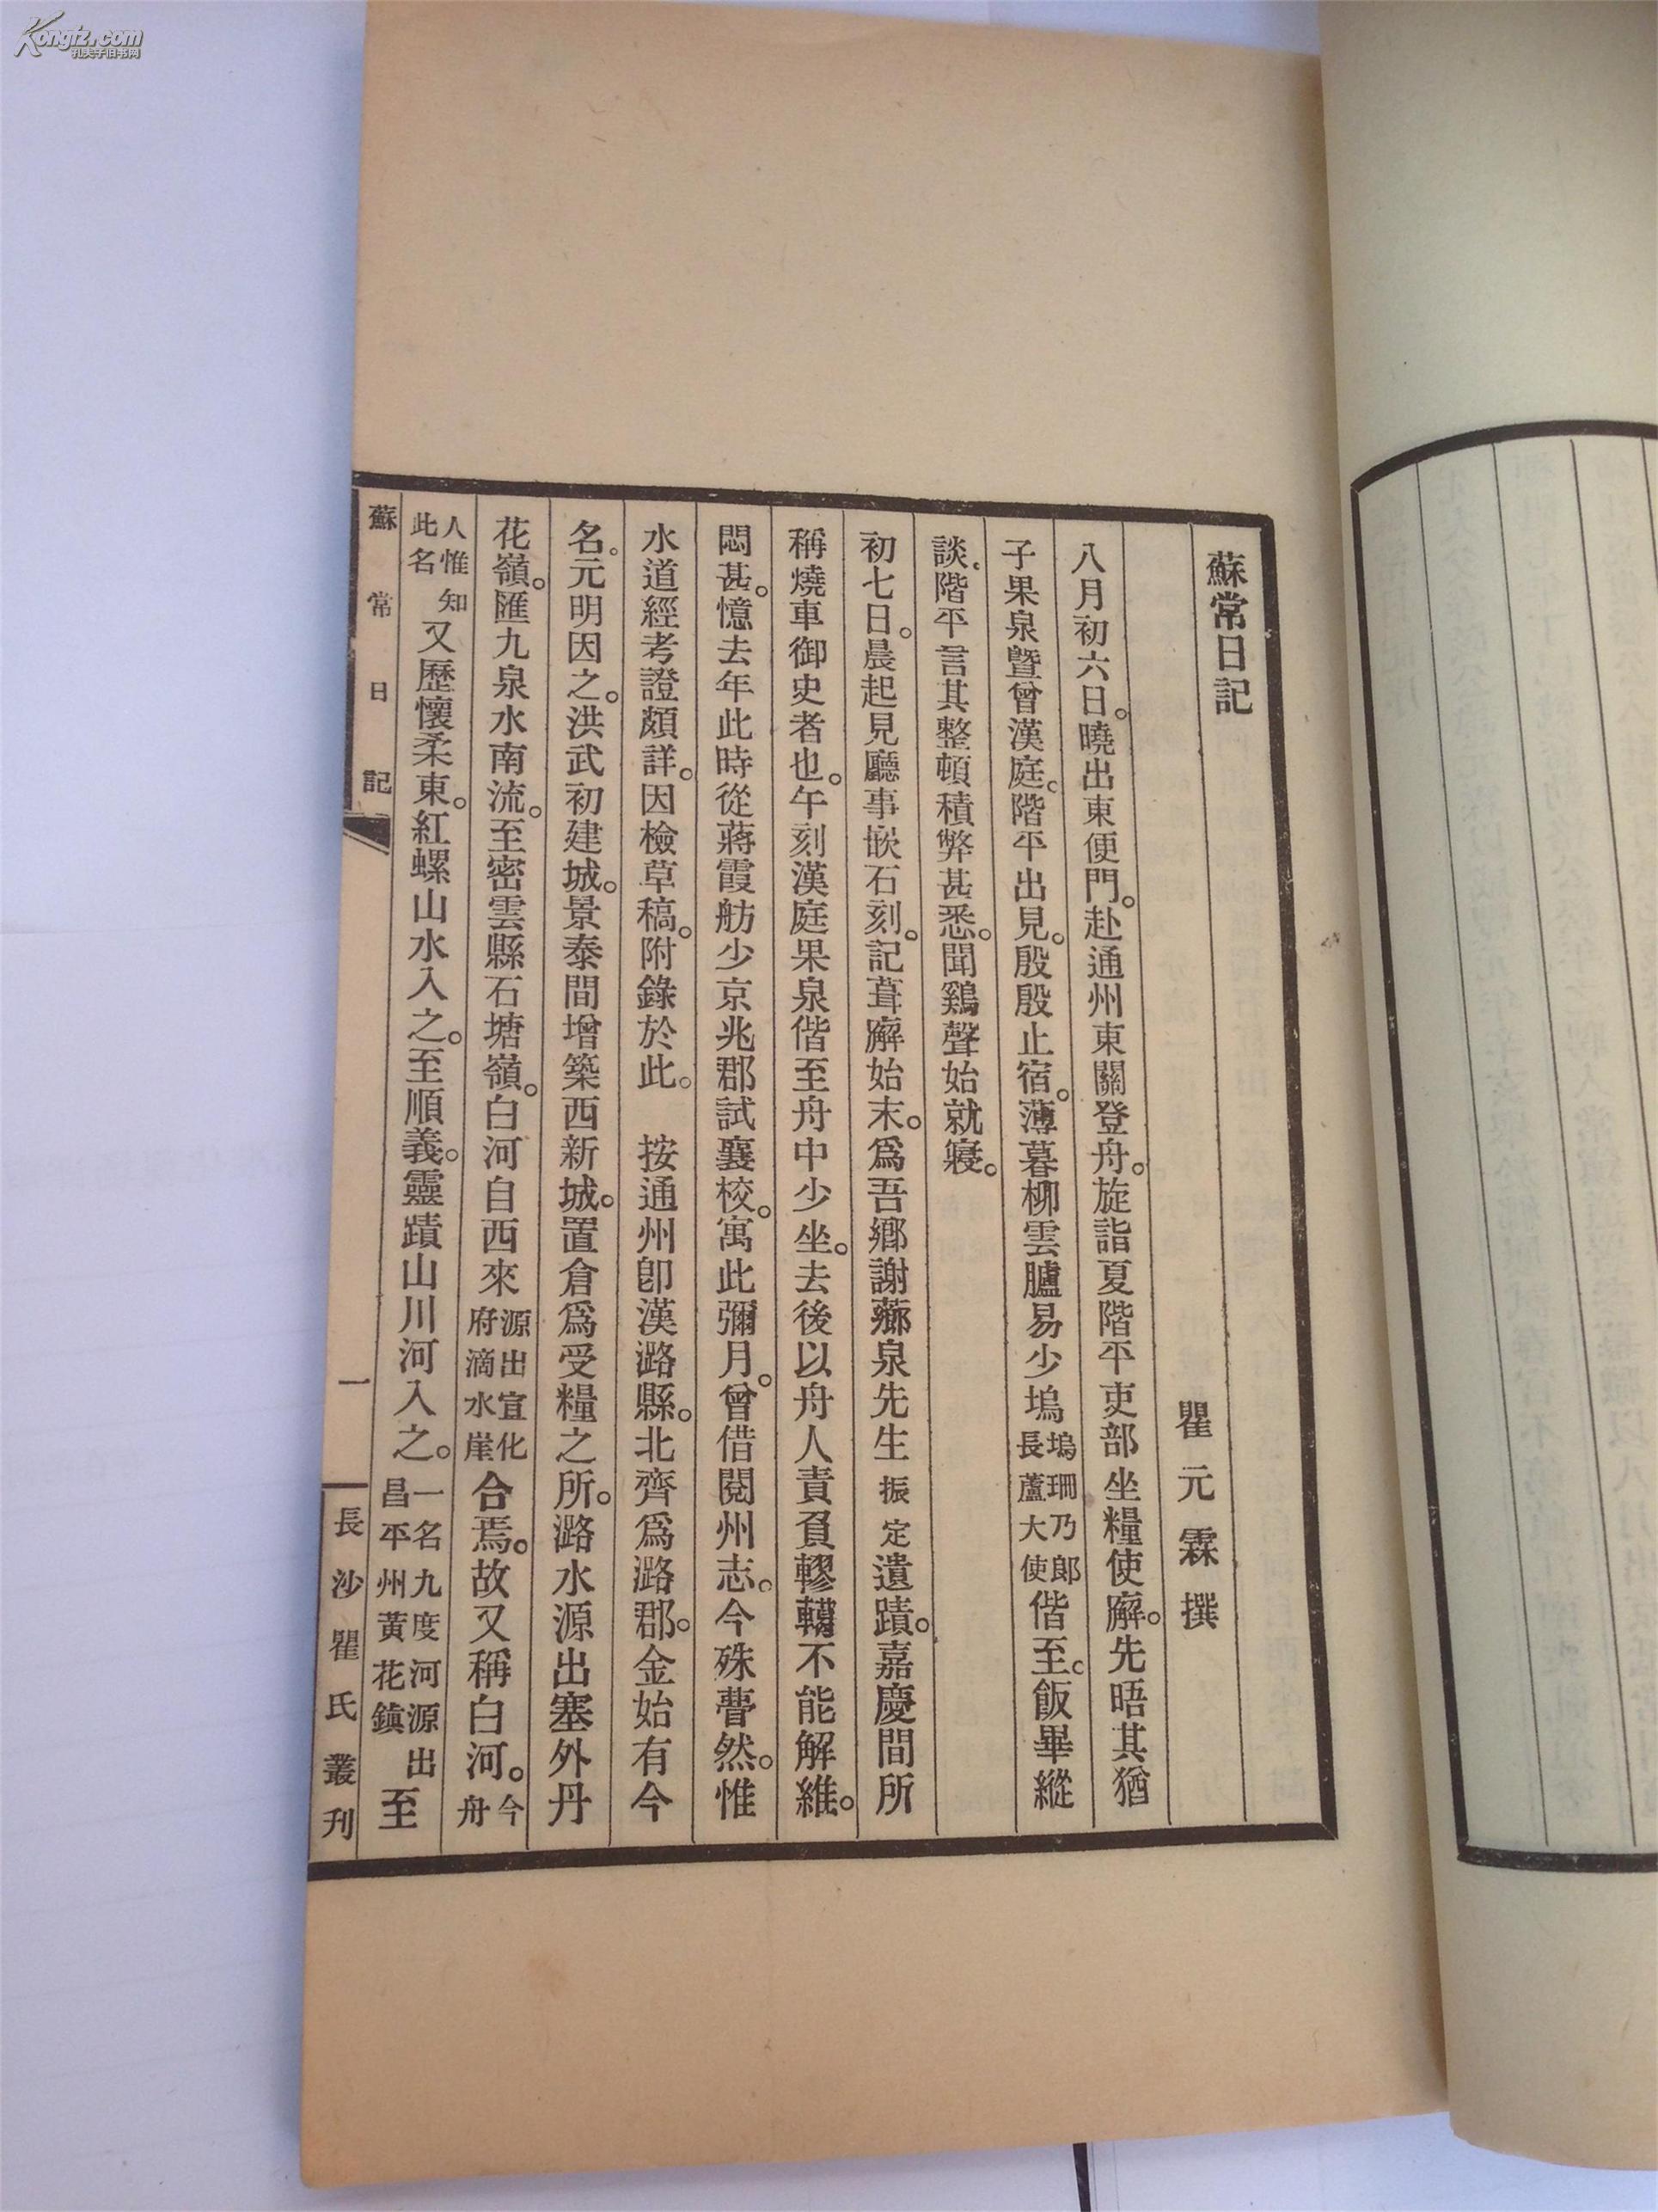 Kongfz.com
孔夫子旧书网
蘇常日記
瞿元霖撰
八月初六日。曉出東便門。赴通州東關登舟。旋詣夏階平吏部坐糧使廨。先晤其猶
子果泉曁曾漢庭。階平出見。殷殷止宿。薄暮柳雲臚易少塢塢珊乃郞長蘆大使偕至。飯畢縱
談。階平言其整頓積弊甚悉。聞鷄聲始就寢。
初七日。晨起見廳事嵌石刻。記葺廨始末。爲吾鄕謝薌泉先生振定遺蹟。嘉慶間所
稱燒車御史者也。午刻漢庭果泉偕至舟中少坐。去後以舟人責負轇轕不能解維。
悶甚。憶去年此時從蔣霞舫少京兆郡試襄校。寓此彌月。曾借閱州志。今殊瞢然。惟
水道經考證頗詳。因檢草稿。附錄於此。　按通州卽漢潞縣。北齊爲潞郡。金始有今
名。元明因之。洪武初建城。景泰間增築西新城。置倉爲受糧之所。潞水源出塞外丹
花嶺。匯九泉水南流。至密雲縣石塘嶺。白河自西來源出宜化府滴水崖合焉。故又稱白河。今舟
人惟知此名又歷懷柔東。紅螺山水入之。至順義。靈蹟山川河入之。一名九度河源出昌平州黃花鎮至
蘇常日記
一
長沙瞿氏叢刊